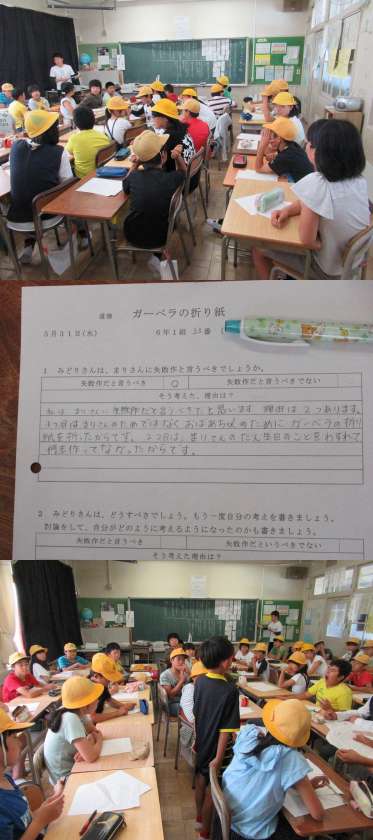 道徳 ガーベラの折り紙
5月31日(水) 6年1組 33番 (
1 みどりさんは、まりさんに失敗作と言うべきでしょうか。
失敗作だと言うべき ○ 失敗作だと言うべきでない
そう考えた、理由は?
私は、まりさんに失敗作だと言うべきだと思います。理由は2つあります。
1つ目はまりさんのためではなく、おばあちゃんのためにガーベラの折り
紙を折ったからです。2つ目は、まりさんのたん生日のことを
何も作ってなかったからです。
2 みどりさんは、どうすべきでしょう。もう一度自分の考えを書きましょう。
討論をして、自分がどのように考えるようになったのかも書きましょう。
失敗作だと言うべき 失敗作だというべきでない
そう考えた理由は?